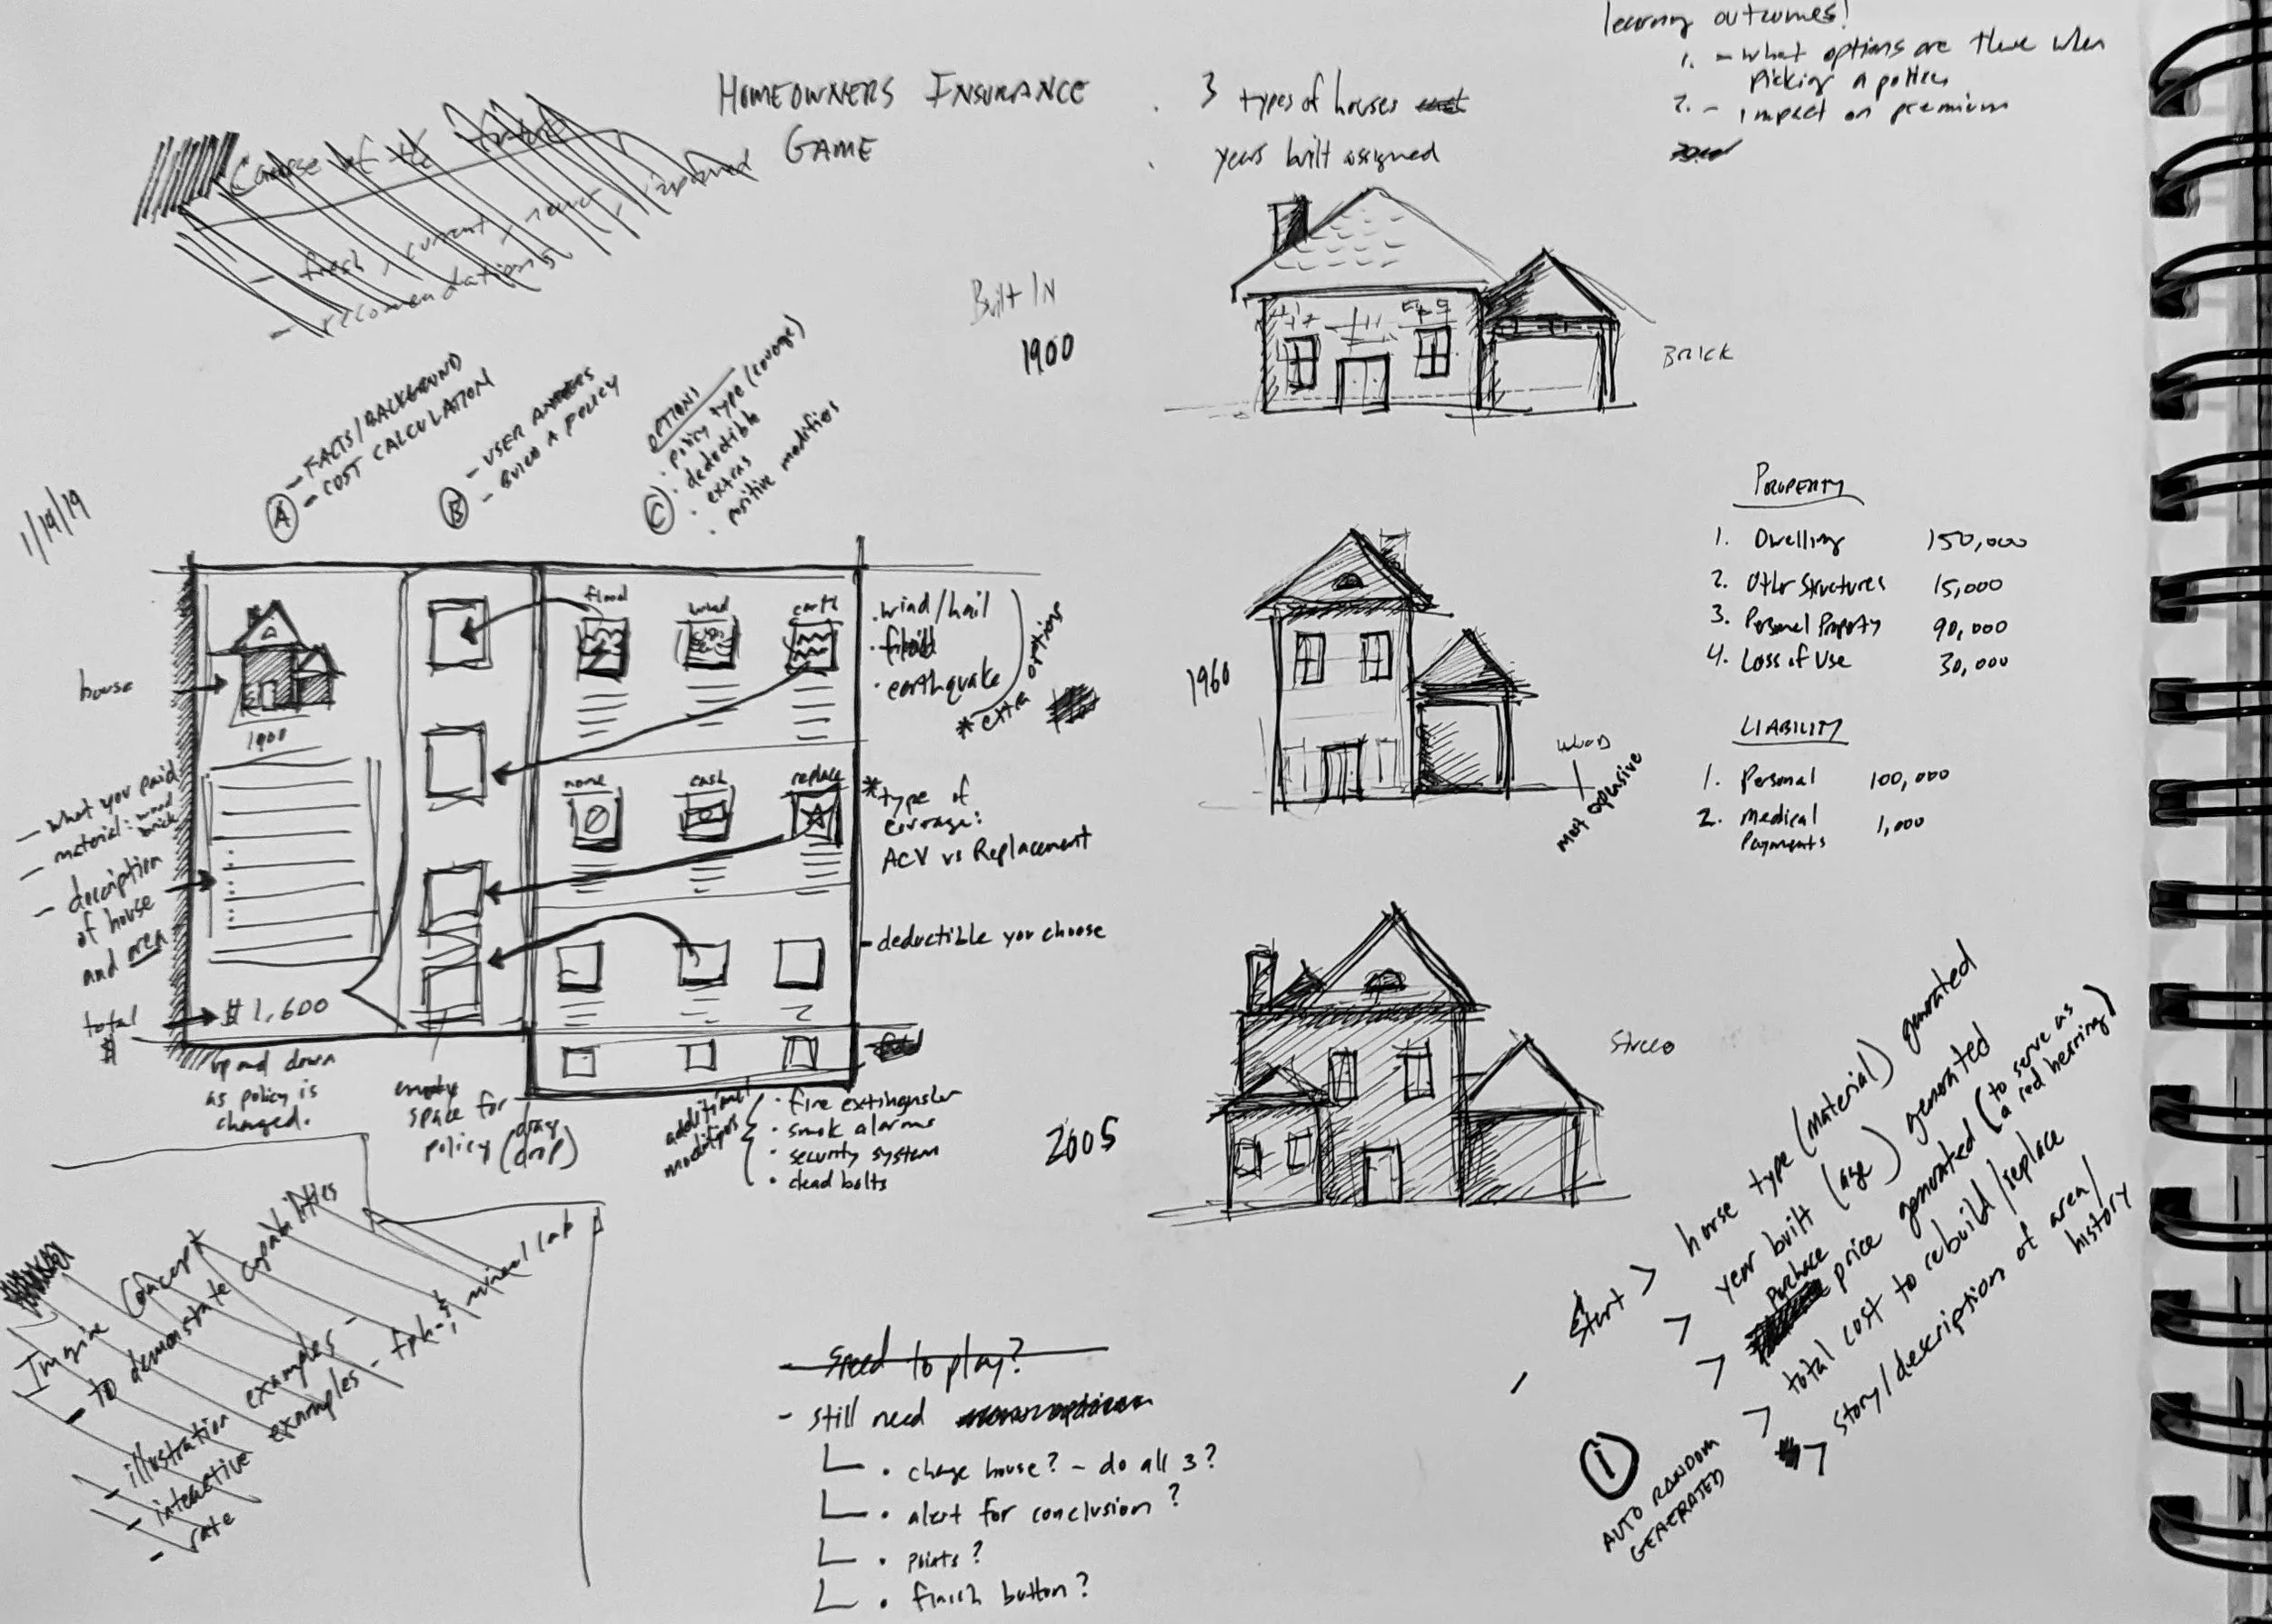 HOMEOWNERS INSURANCE
GAME
. 3 types of houses
. years built assigned
learning outcomes!
1. - What options are there when
picking a
2. - impact on premium
- fresh, current,
- recomendations,
Built IN
1900
BRICK
1/19/19
A
- FACTS/BACKGROUND
- COST CALCULATION
B
- USER ANSWERS
- BUILD A POLICY
C
OPTIONS
. policy type (covrage)
. deductible
. extras
. positive modifiers
house
1900
- what you paid
- material: wood
brick
- description
of house
and area
total
$
$ 1,600
up and down
as policy is
changed.
flood
wind
earth
. wind/hail
. flood
. earthquake
* extra options
none
cash
replace
* type of
covrage:
ACV vs Replacement
- deductible you choose
empty
space for
policy (drag
drop)
additional
modifiers
. fire extinguisher
. smok alarms
. security system
. dead bolts
1960
WOOD
most expensive
PROPERTY
1. Dwelling 150,000
2. Other Structures 15,000
3. Personal Property 90,000
4. Loss of Use 30,000
LIABILITY
1. Personal 100,000
2. Medical 1,000
Payments
2005
Stucco
Imagine Concept
- to demonstate capabilities
- illustration examples -
- interactive examples -
- rate
- Speed to play?
- still need
. change house? - do all 3?
. alert for conclusion?
. points?
. finish button?
- Start > house type (material) generated
> year built (age) generated
> Purchace price generated (to serve as
a red herring)
> total cost to rebuild/replace
> story/description of area/
history
1
AUTO RANDOM
GENERATED